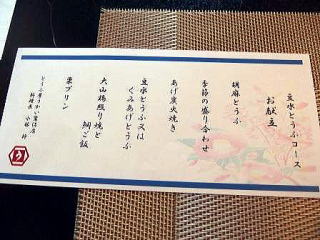 豆水とうふコース
お献立
胡麻とうふ
季節の盛り合わせ
あげ炭火焼き
豆水とうふ又は
くみあげとうふ
大山鶏照り焼と
鯛ご飯
栗プリン
とうふ屋うかい鷺沼店
料理長
う